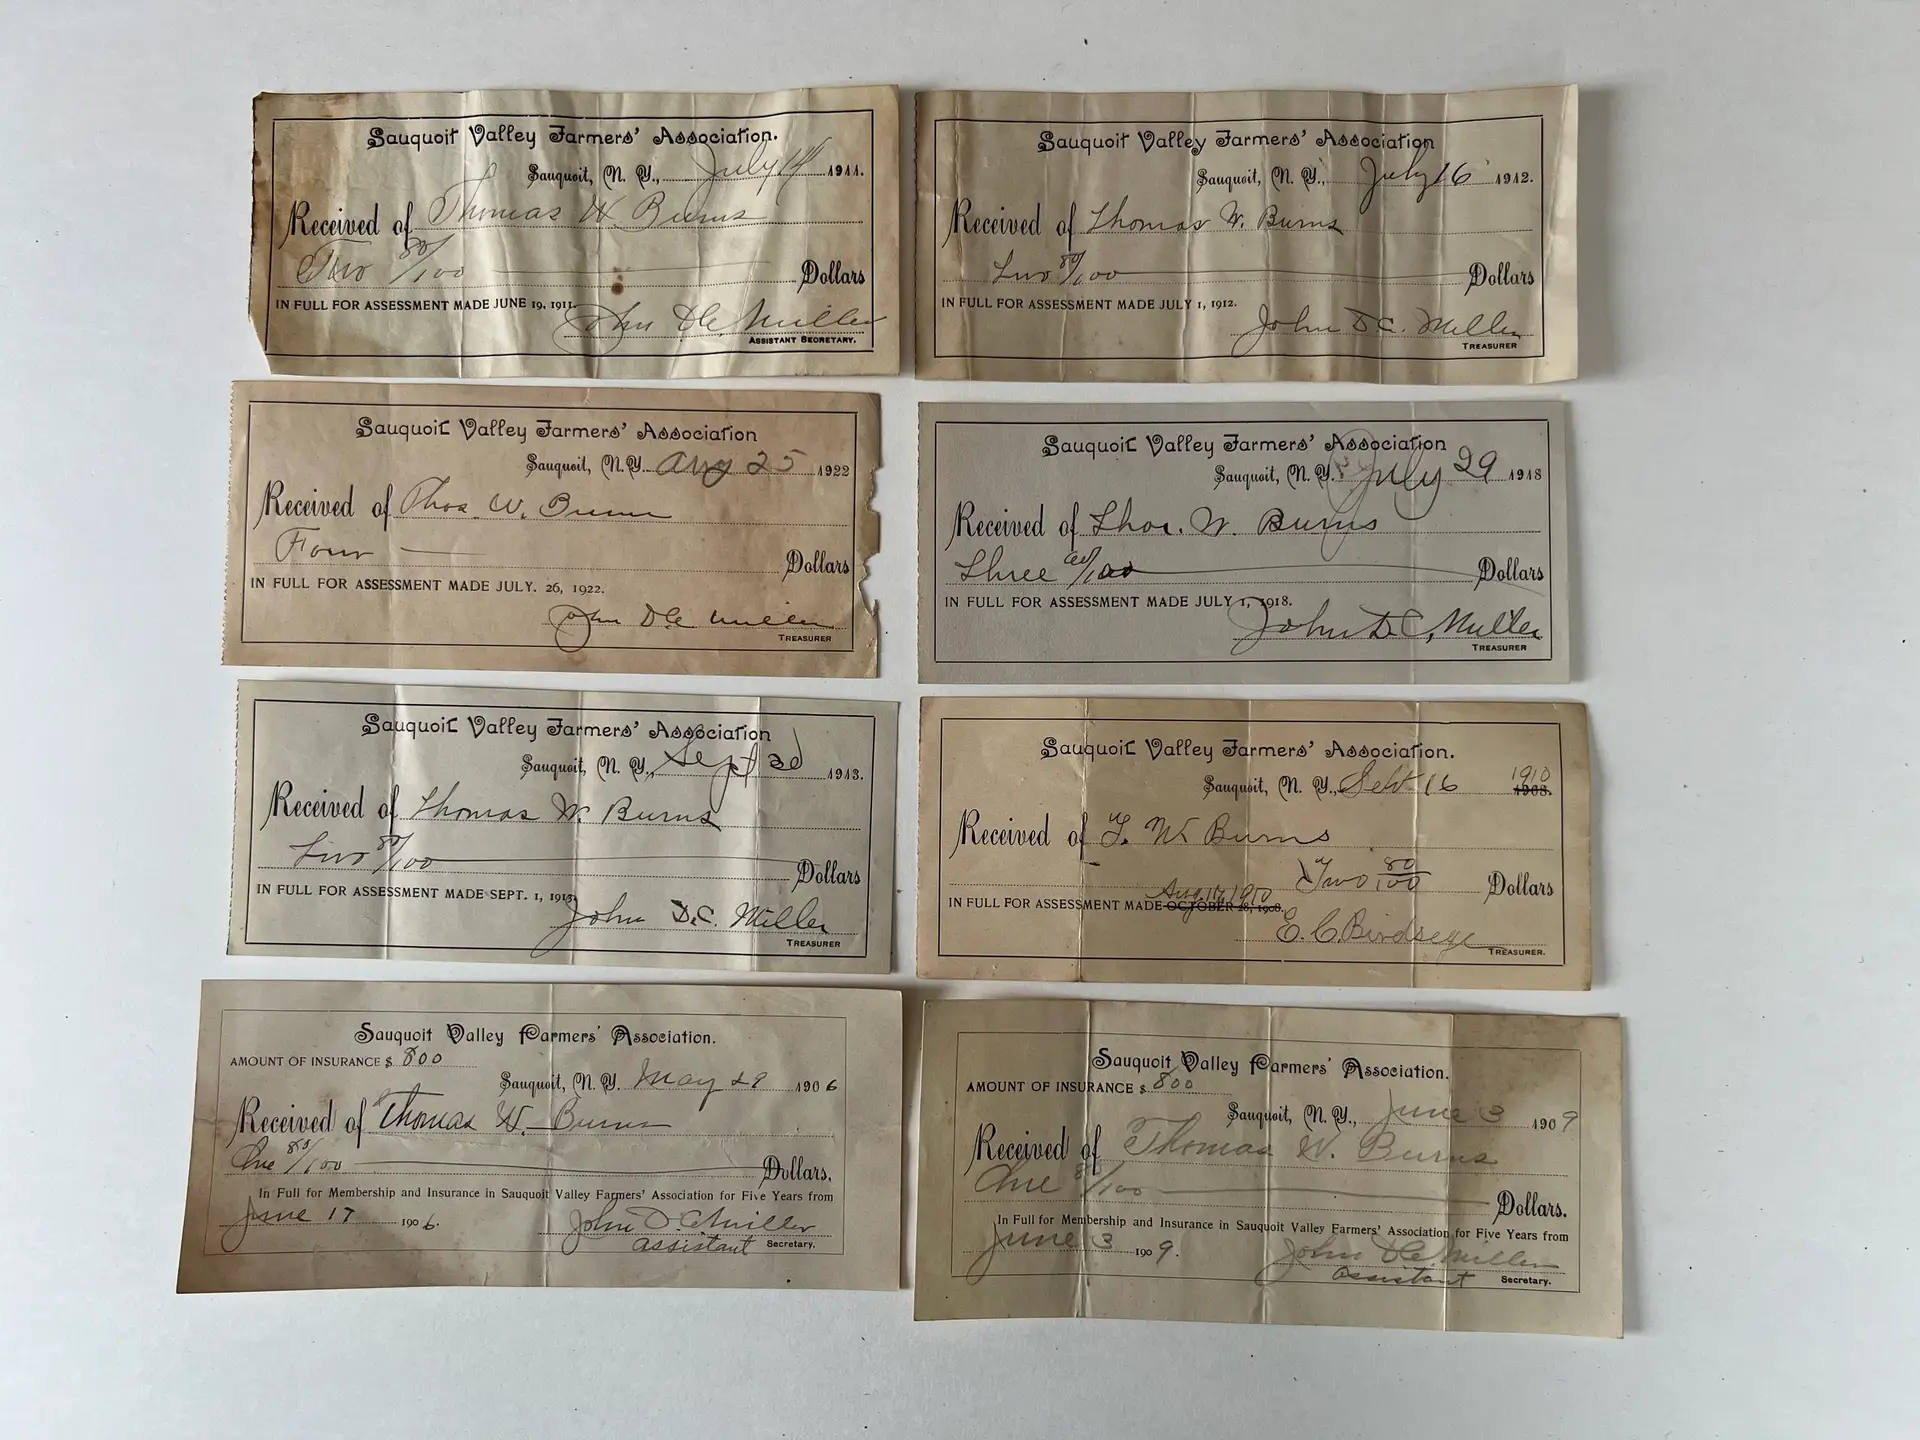 Sauquoit Valley Farmers' Association.
Sauquoit, N. Y., July 14 1911.
Received of Thomas W Burns
Two 80/100 Dollars
IN FULL FOR ASSESSMENT MADE JUNE 19, 1911.
John D C Miller
ASSISTANT SECRETARY.
Sauquoit Valley Farmers' Association
Sauquoit, N. Y., July 16 1912.
Received of Thomas W. Burns
Two 80/100 Dollars
IN FULL FOR ASSESSMENT MADE JULY 1, 1912.
John D. C. Miller
TREASURER
Sauquoit Valley Farmers' Association
Sauquoit, N. Y. Aug 25 1922
Received of Thos. W. Burns
Four Dollars
IN FULL FOR ASSESSMENT MADE JULY. 26, 1922.
John D C Miller
TREASURER
Sauquoit Valley Farmers' Association
Sauquoit, N. Y. July 29 1918
Received of Thos. W. Burns
Three /100 Dollars
IN FULL FOR ASSESSMENT MADE JULY 1, 1918.
John D. C. Miller
TREASURER
Sauquoit Valley Farmers' Association
Sauquoit, N. Y., Sept 30 1913.
Received of Thomas W. Burns
Two 80/100 Dollars
IN FULL FOR ASSESSMENT MADE SEPT. 1, 1913.
John D. C. Miller
TREASURER
Sauquoit Valley Farmers' Association.
1910
Sauquoit, N. Y., Sept. 16 1908.
Received of T. W. Burns
Two 80/100 Dollars
Aug 17, 1910
IN FULL FOR ASSESSMENT MADE OCTOBER 28, 1908.
E. C. Birdseye
TREASURER.
Sauquoit Valley Farmers' Association.
AMOUNT OF INSURANCE $ 800
Sauquoit, N. Y. May 29 1906
Received of Thomas W. Burns
One 80/100 Dollars.
In Full for Membership and Insurance in Sauquoit Valley Farmers' Association for Five Years from
June 17 1906.
John D. C. Miller
assistant Secretary.
Sauquoit Valley Farmers' Association.
AMOUNT OF INSURANCE $ 800
Sauquoit, N. Y., June 3 1909
Received of Thomas W. Burns
One 80/100 Dollars.
In Full for Membership and Insurance in Sauquoit Valley Farmers' Association for Five Years from
June 3 1909.
John D C Miller
assistant Secretary.